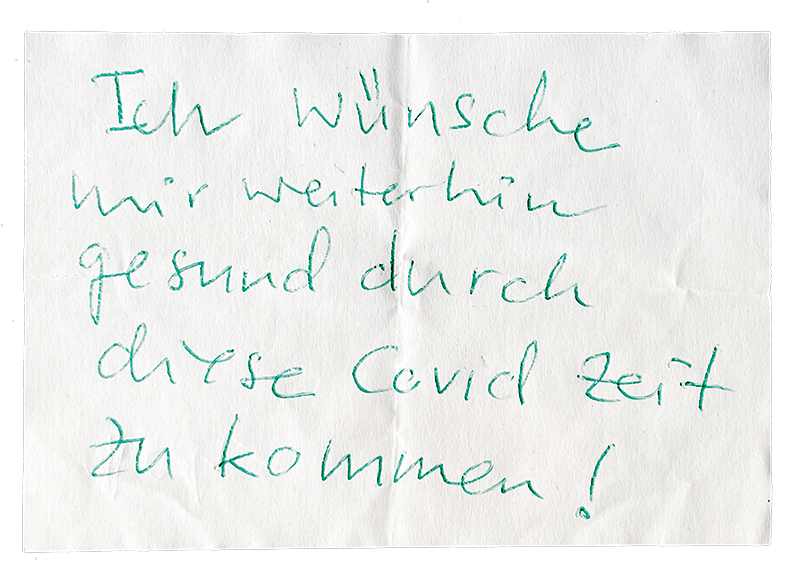 Ich wünsche
mir weiterhin
gesund durch
diese Covid Zeit
zu kommen!